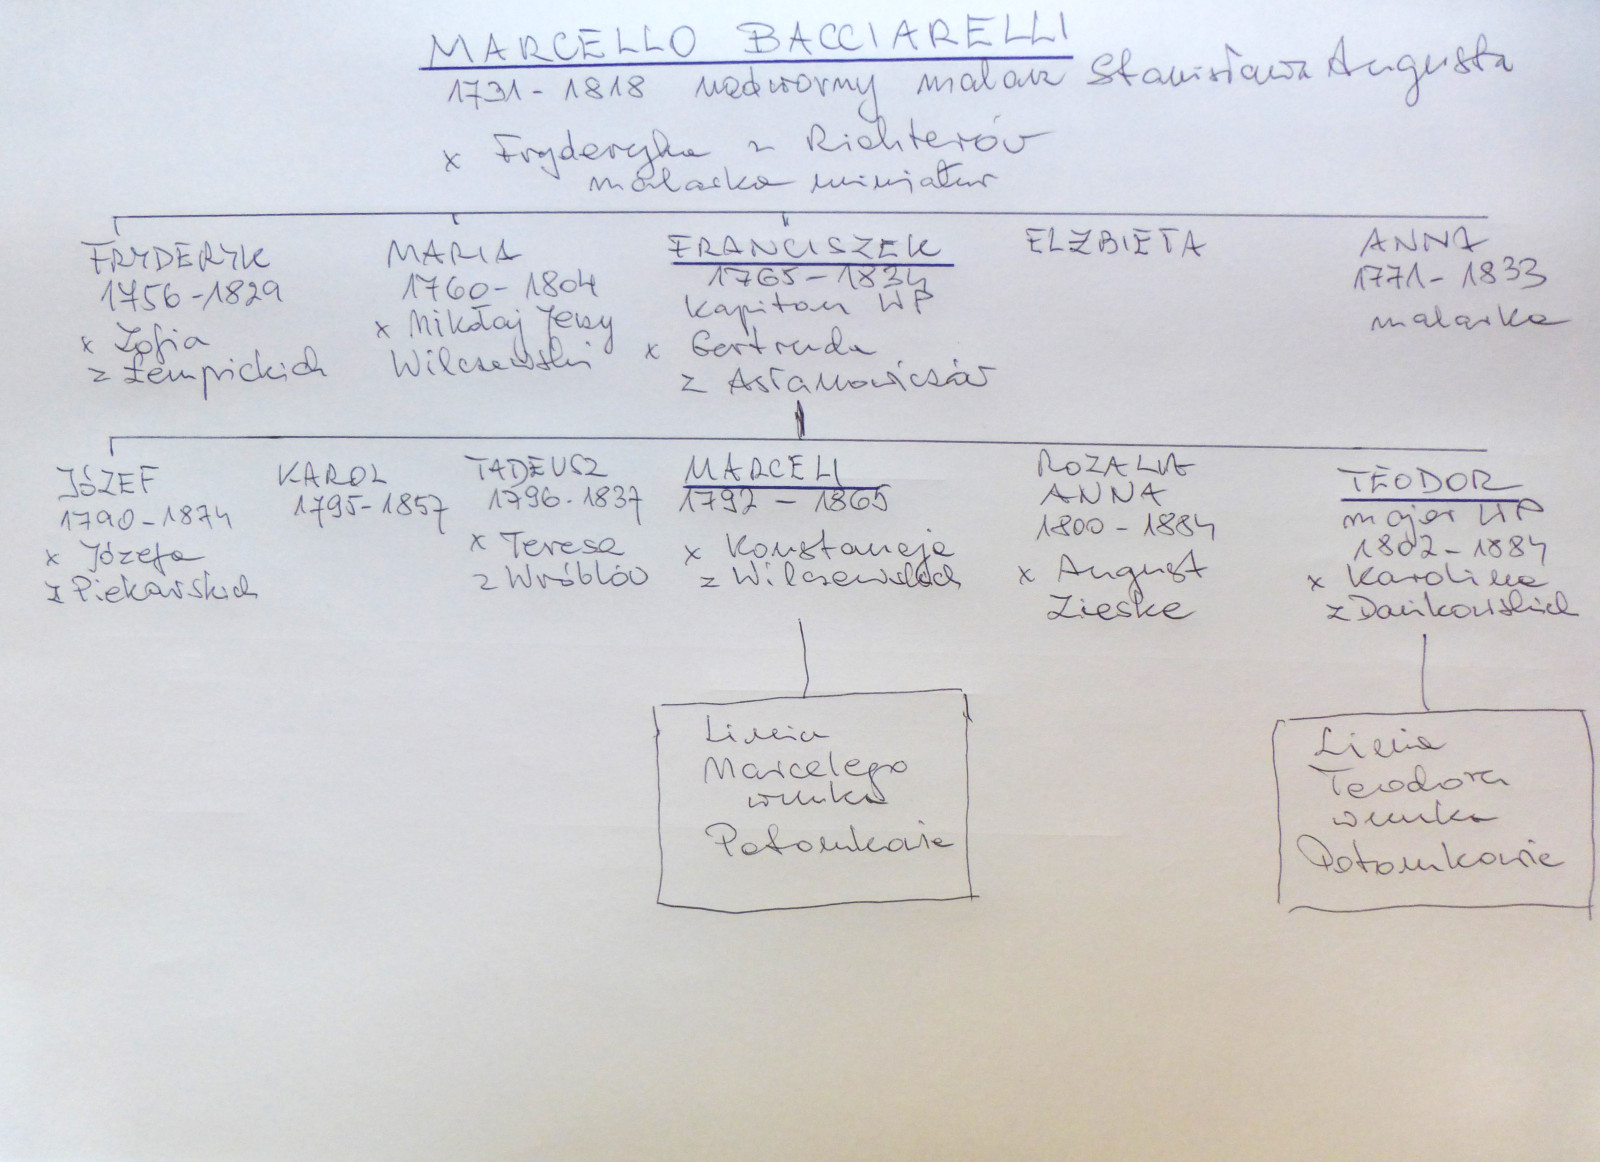 MARCELLO BACCIARELLI
1731 - 1818 nadworny malarz Stanisława Augusta
x Fryderyka z Richterów
malarka miniatur
FRYDERYK
1756 - 1829
x Zofia
z Łempickich
MARIA
1760 - 1804
x Mikołaj Jerzy
Wilczewski
FRANCISZEK
1765 - 1834
Kapitan WP
x Gertruda
z Asłanowiczów
ELŻBIETA
ANNA
1771 - 1833
malarka
JÓZEF
1790 - 1874
x Józefa
z Piekarskich
KAROL
1795 - 1857
TADEUSZ
1796 - 1837
x Teresa
z Wróblów
MARCELI
1792 - 1865
x Konstancja
z Wilczewskich
ROZALIA
ANNA
1800 - 1884
x August
Zieske
TEODOR
major WP
1802 - 1884
x Karolina
z Dańkowskich
Linia
Marcelego
wnuka
Potomkowie
Linia
Teodora
wnuka
Potomkowie